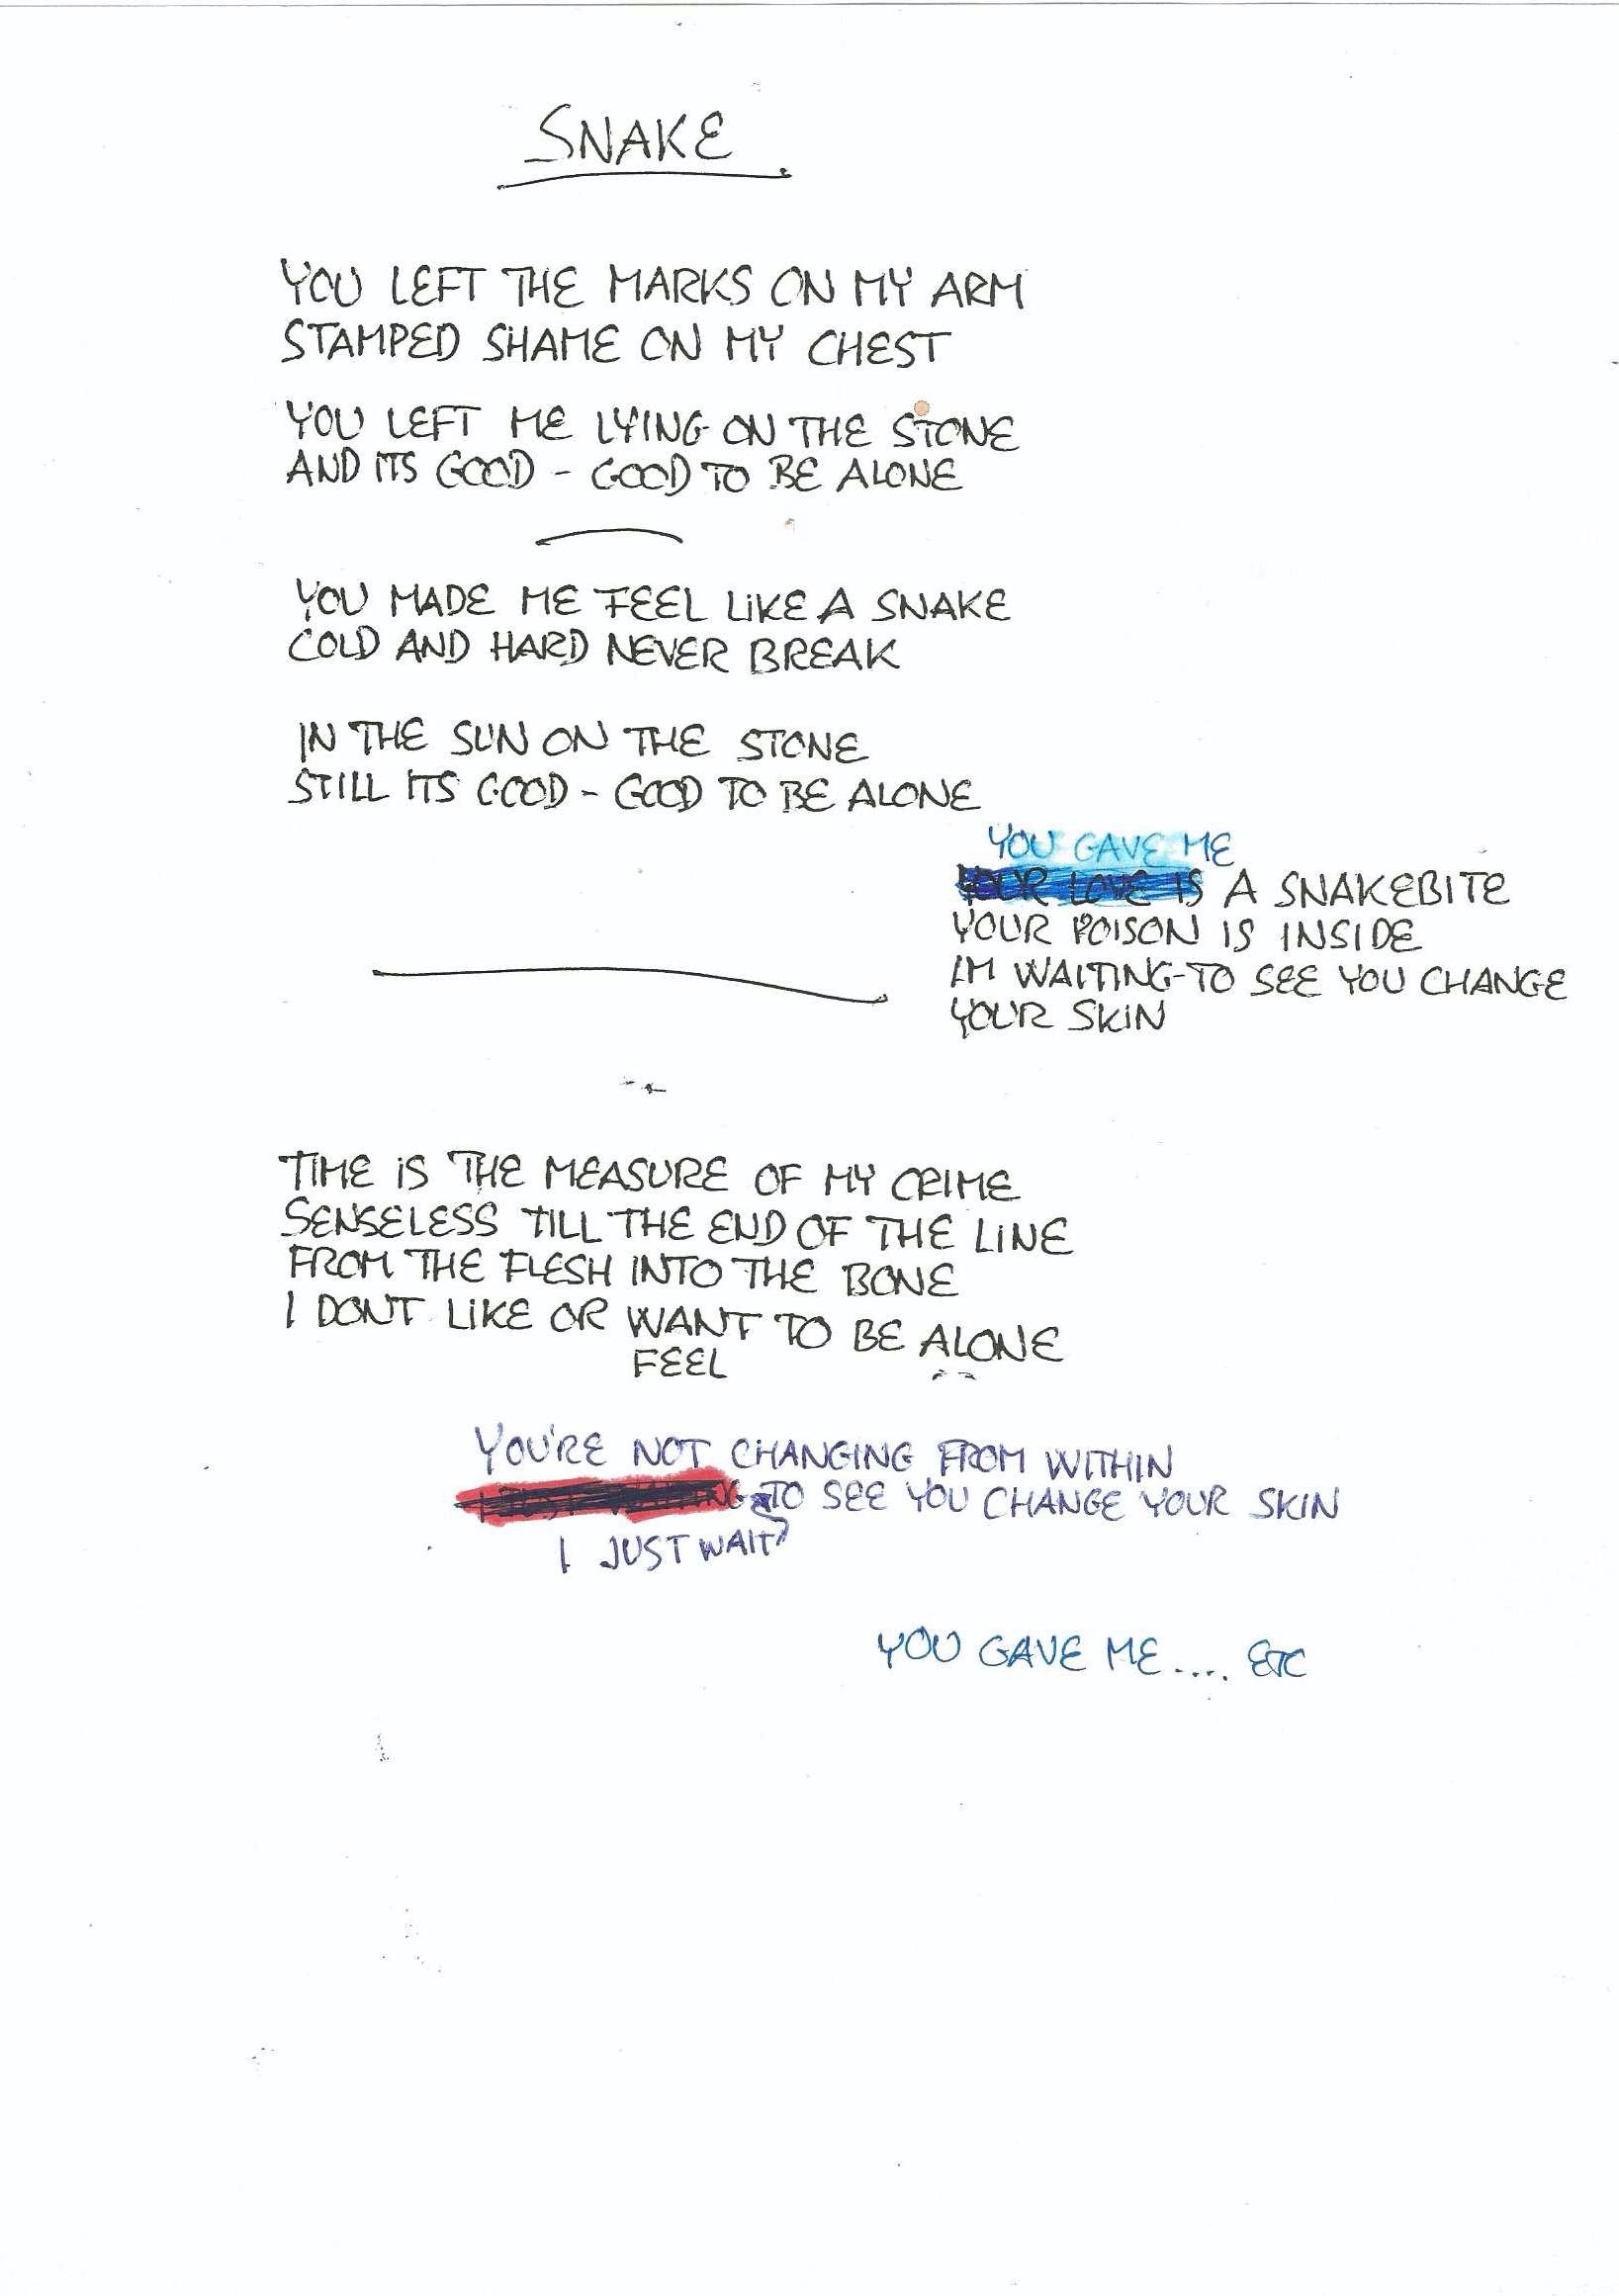 SNAKE
YOU LEFT THE MARKS ON MY ARM
STAMPED SHAME ON MY CHEST
YOU LEFT ME LYING ON THE STONE
AND ITS GOOD - GOOD TO BE ALONE
YOU MADE ME FEEL LIKE A SNAKE
COLD AND HARD NEVER BREAK
IN THE SUN ON THE STONE
STILL ITS GOOD - GOOD TO BE ALONE
YOU GAVE ME
YOUR LOVE IS A SNAKEBITE
YOUR POISON IS INSIDE
IM WAITING TO SEE YOU CHANGE
YOUR SKIN
TIME IS THE MEASURE OF MY CRIME
SENSELESS TILL THE END OF THE LINE
FROM THE FLESH INTO THE BONE
I DONT LIKE OR WANT TO BE ALONE
FEEL
YOU'RE NOT CHANGING FROM WITHIN
I JUST WAITING TO SEE YOU CHANGE YOUR SKIN
I JUST WAIT
YOU GAVE ME.... ETC